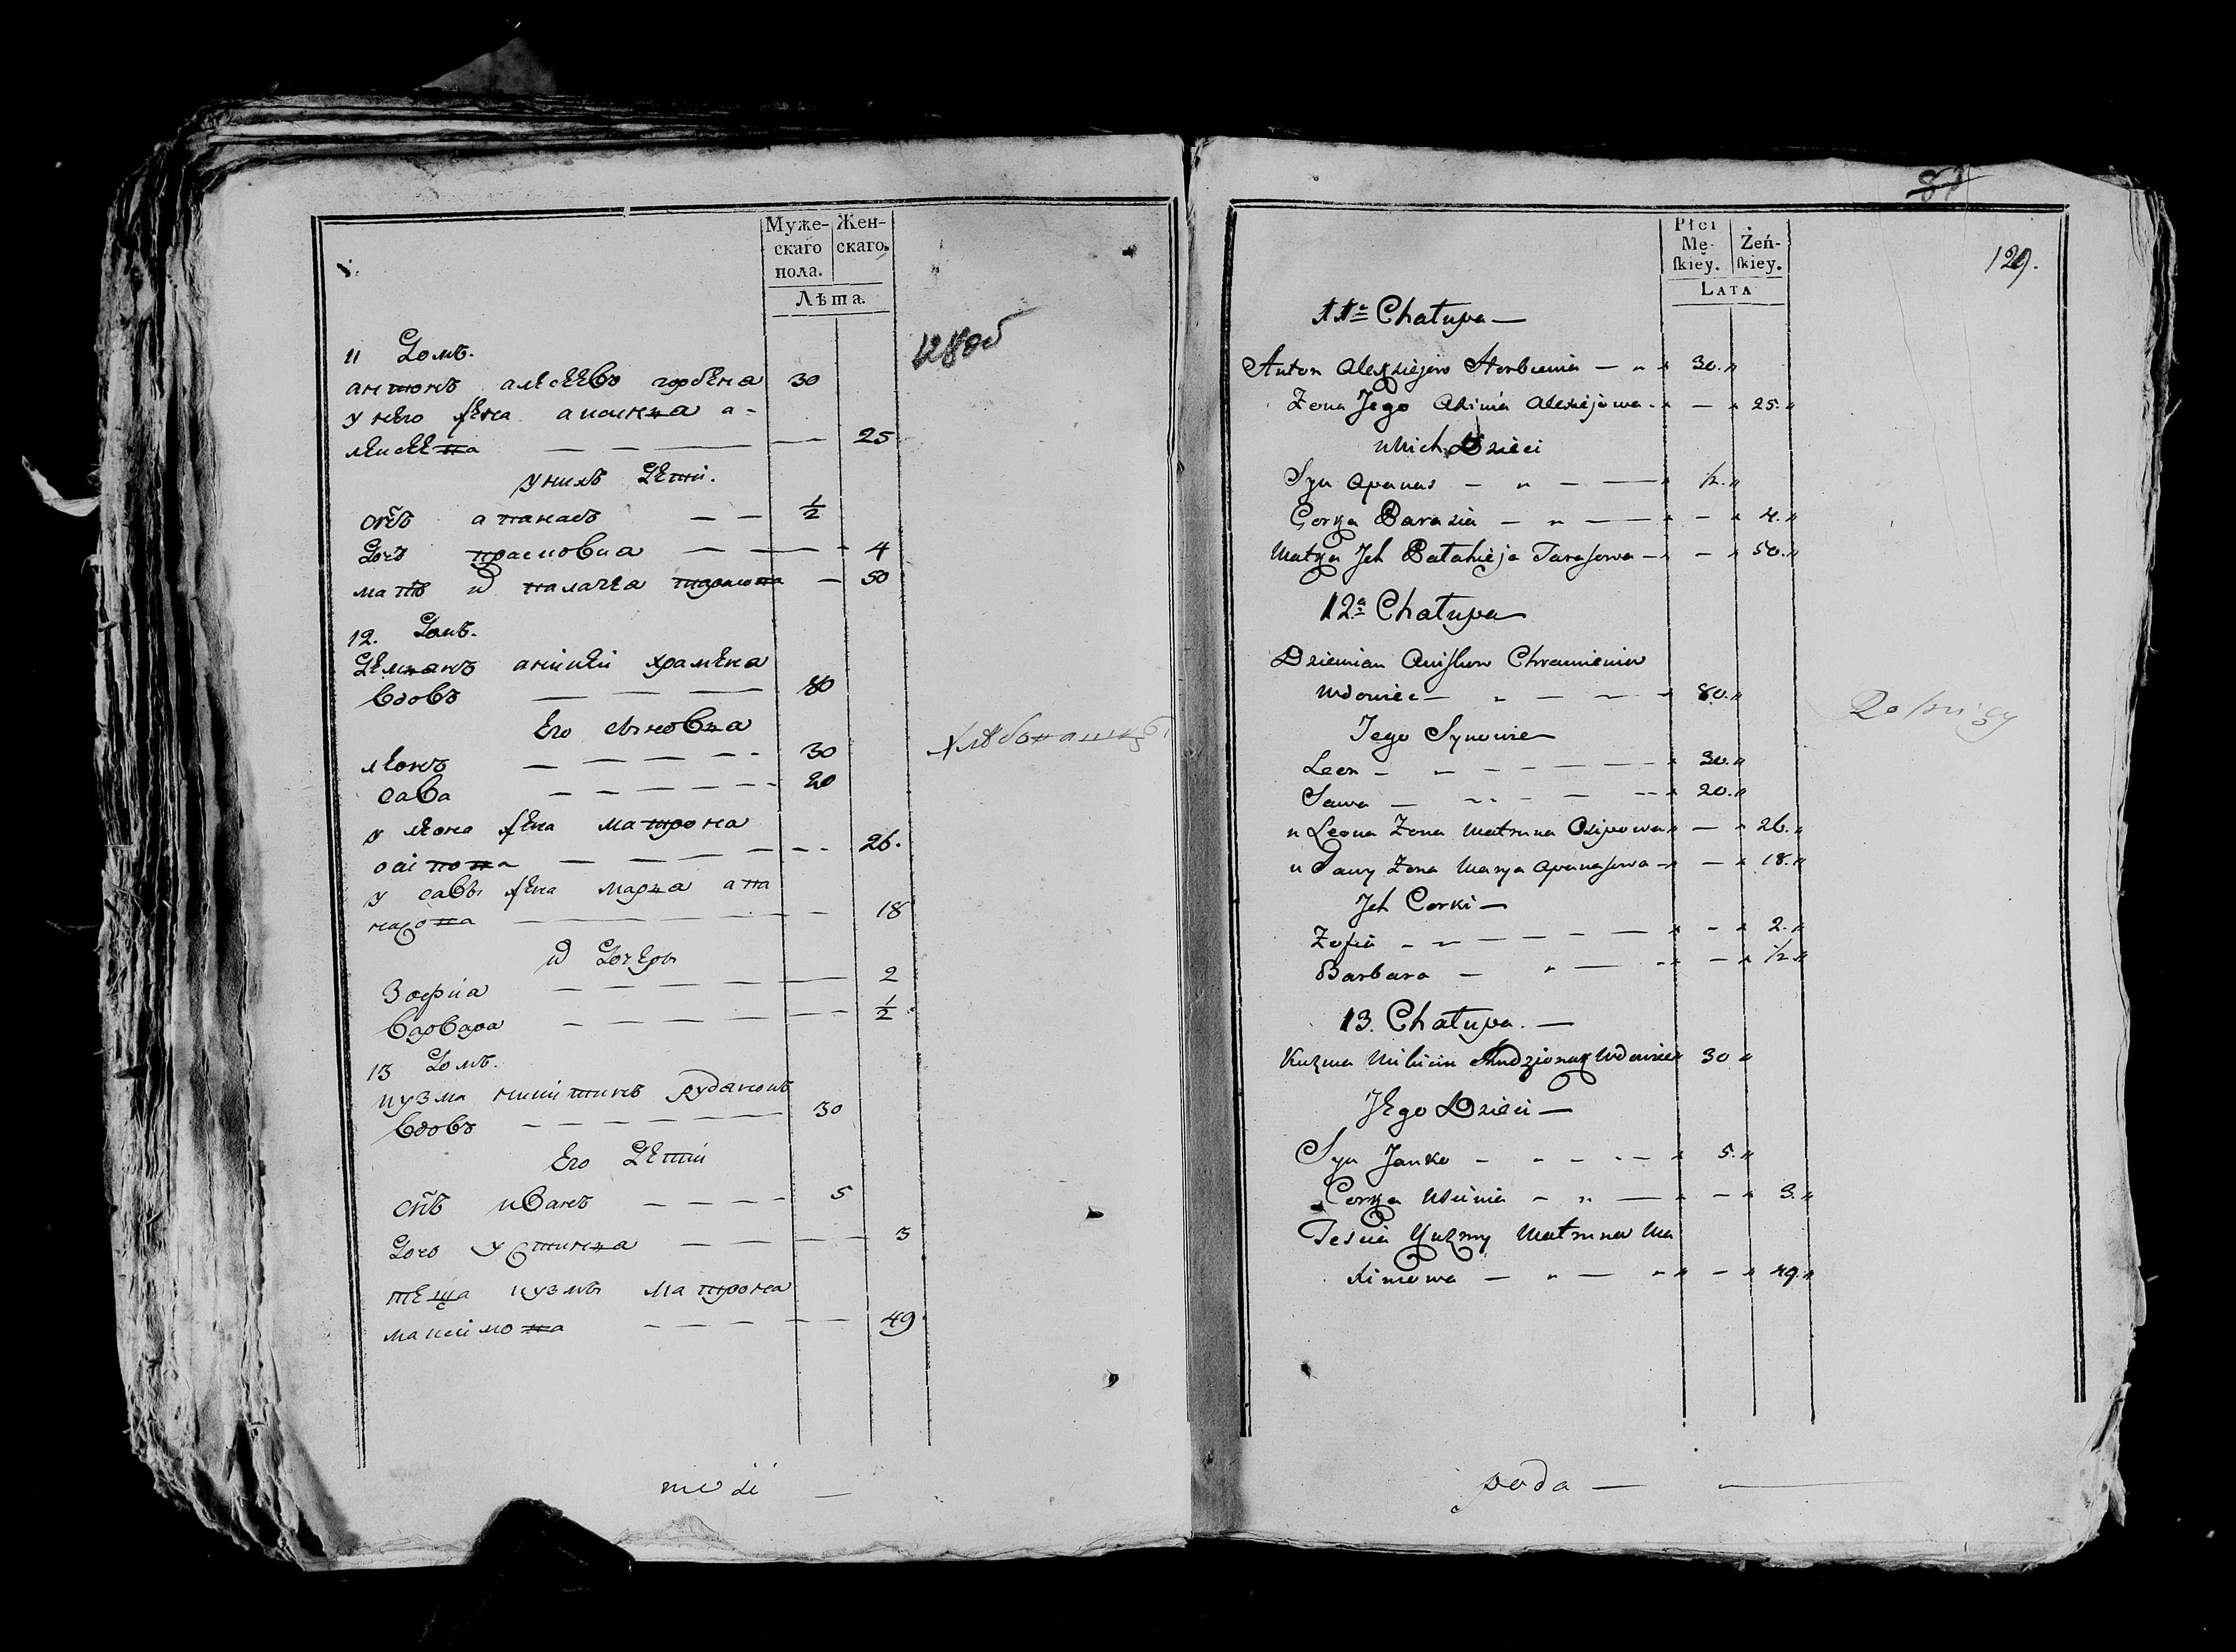 Муже-
скаго
пола.
Жен-
скаго.
Лѣта.
128 об
11 Домъ.
антонъ алесеевъ горбеня 30
у него жена аксинья а-
лексеевна — — — — 25
у нихъ дети.
снъ апанасъ — — ½
дочь прасковиа — — — 4
мать и
палагея тарасовна — 50
12. Домъ.
демьянъ аникеи храменя
вдовъ — — — 80
его сыновья
леонъ — — — — 30
сава — — — — 20
у леона жена матрона
осиповна — — — — 26.
у саввы жена марья апа
насовна — — — 18
и дочеры
Зофиа — — — — 2
варвара — — — — ½
13 Домъ.
кузма никитинъ руданокъ
вдовъ — — — — 30
его дети
снъ иванъ — — — — 5
дочь устинья — — — 3
теща кузмы матрона
максимовна — — — — 49
Płci
Mę-
ſkiey.
Żeń-
ſkiey.
LATA
129.
11a Chałupa —
Anton Alexiejew Horbienia — 30.
Żona Jego Axinia Alexiejewa — 25.
u ich Dzieci
Syn Apanas — — ½.
Corka Parasia — — 4.
Matka Jch Pałahieja Tarasowa — 50.
12a Chałupa
Dziemian Anikiew Chramienia
wdowiec — — 80.
Jego Synowie
Leon — — — 30.
Sawa — — — 20.
u Leona Żona Matruna Osipowa — 26.
u Sawy Żona Marya Apanasowa — 18.
Jch Corki —
Zofia — — — 2.
Barbara — — ½.
13. Chałupa. —
Kuzma Nikicin Rudzionak Wdowiec 30
Jego Dzieci —
Syn Janko — — — 5.
Corka Uscinia — — 3.
Tescia Kuzmy Matruna Ma
ximowa — — 49.
poda —